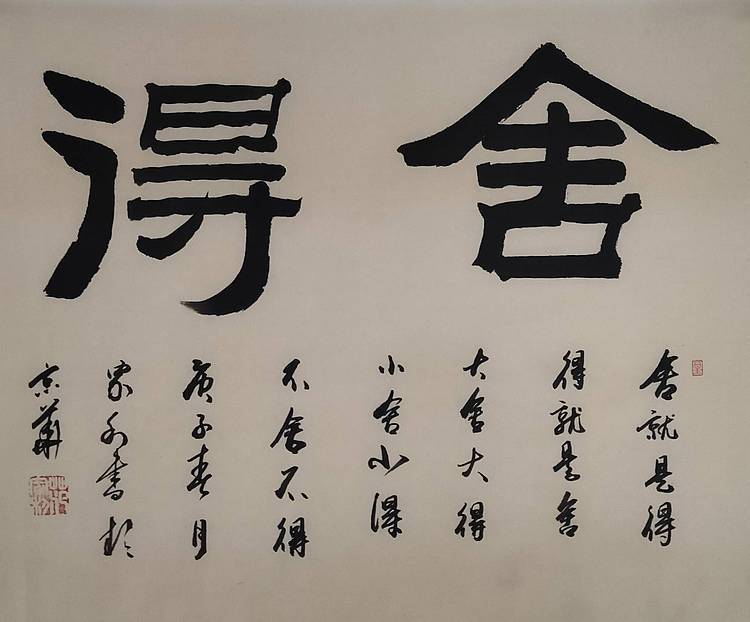 舍得
舍就是得
得就是舍
大舍大得
小舍小得
不舍不得
庚子春月
書於
京華